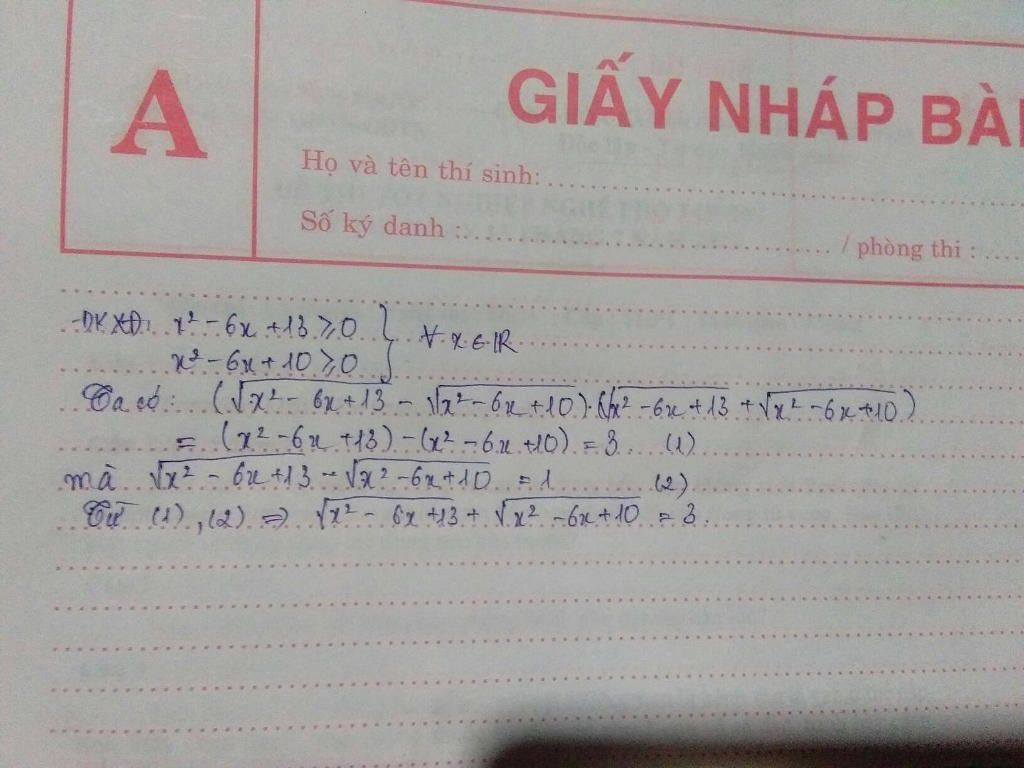 A
GIẤY NHÁP BÀI
Họ và tên thí sinh:
Số ký danh : / phòng thi :
ĐKXĐ: x² - 6x + 13 ≥ 0 } ∀ x ∈ ℝ
x² - 6x + 10 ≥ 0
Ta có: (√x² - 6x + 13 - √x² - 6x + 10).(√x² - 6x + 13 + √x² - 6x + 10)
= (x² - 6x + 13) - (x² - 6x + 10) = 3 (1)
mà √x² - 6x + 13 - √x² - 6x + 10 = 1 (2)
Từ (1), (2) ⇒ √x² - 6x + 13 + √x² - 6x + 10 = 3.